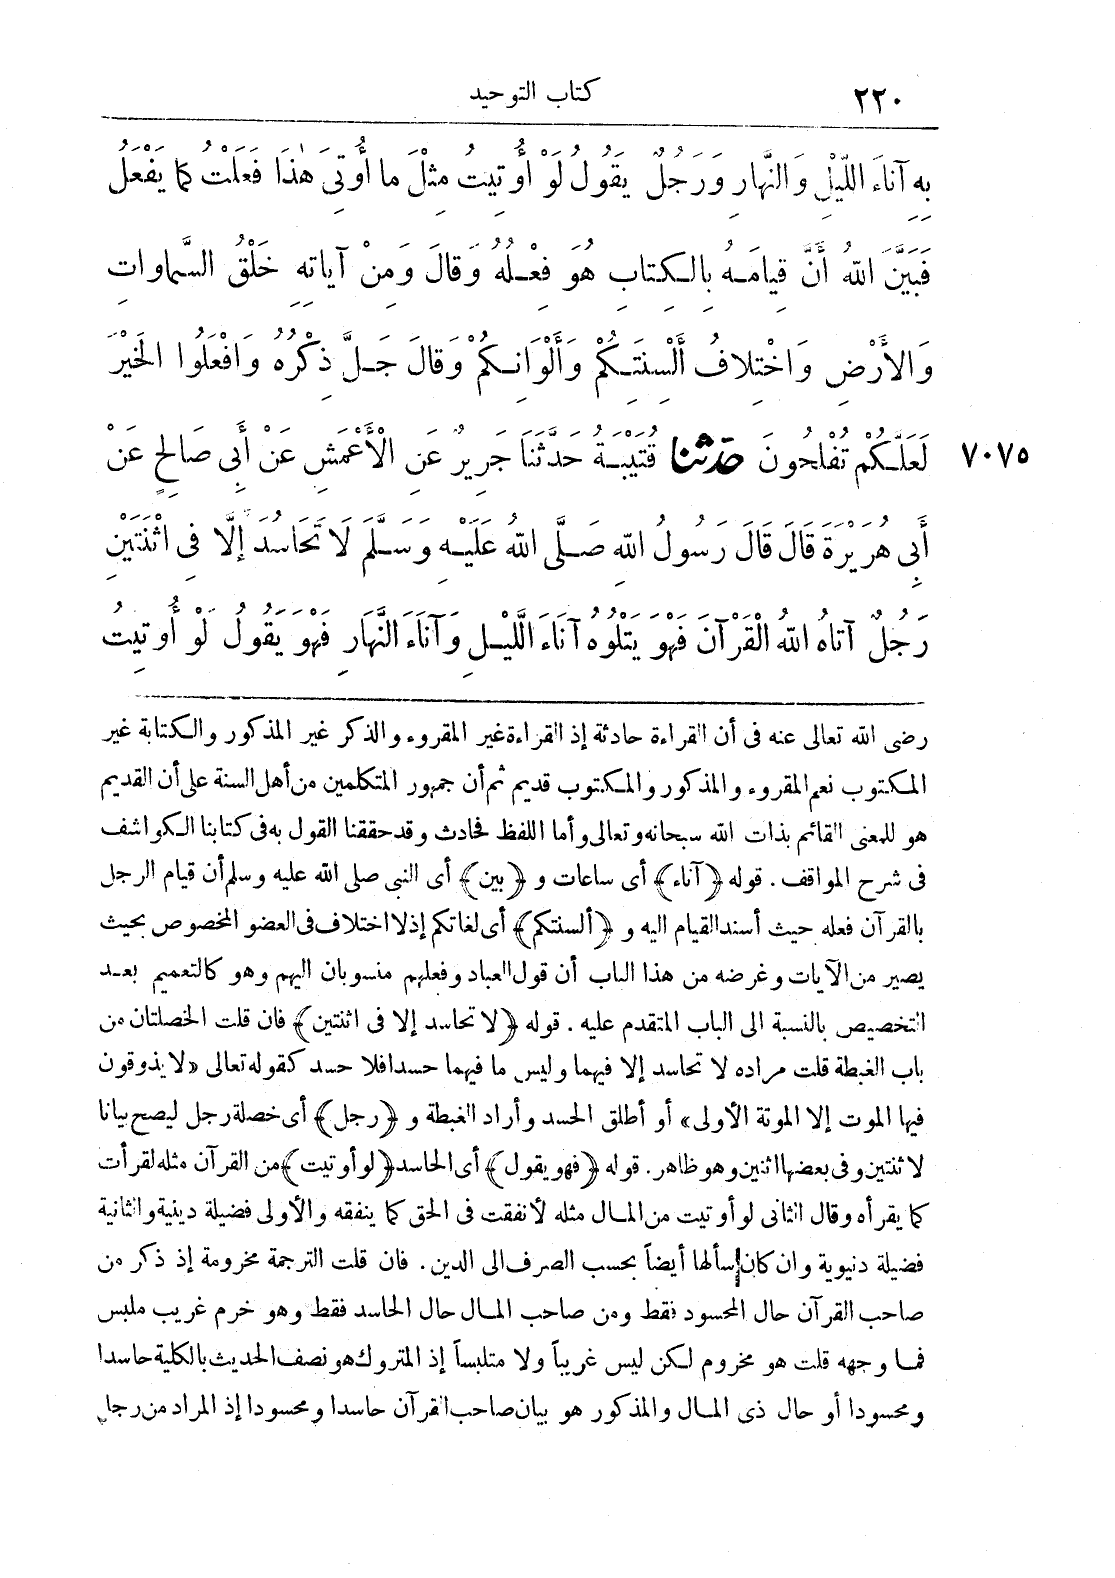 ٢٢٠ كتاب التوحيد
بِهِ آنَاءَ اللَّيْلِ وَالنَّهَارِ وَرَجُلٌ يَقُولُ لَوْ أُوتِيتُ مِثْلَ مَا أُوتِيَ هٰذَا فَعَلْتُ كَمَا يَفْعَلُ
فَبَيَّنَ اللهُ أَنَّ قِيَامَهُ بِالْكِتَابِ هُوَ فِعْلُهُ وَقَالَ وَمِنْ آيَاتِهِ خَلْقُ السَّمَاوَاتِ
وَالأَرْضِ وَاخْتِلافُ أَلْسِنَتِكُمْ وَأَلْوَانِكُمْ وَقَالَ جَلَّ ذِكْرُهُ وَافْعَلُوا الْخَيْرَ
٧٠٧٥ لَعَلَّكُمْ تُفْلِحُونَ حَدَّثَنَا قُتَيْبَةُ حَدَّثَنَا جَرِيرٌ عَنِ الْأَعْمَشِ عَنْ أَبِي صَالِحٍ عَنْ
أَبِي هُرَيْرَةَ قَالَ قَالَ رَسُولُ اللهِ صَلَّى اللهُ عَلَيْهِ وَسَلَّمَ لَا تَحَاسُدَ إِلَّا فِي اثْنَتَيْنِ
رَجُلٌ آتَاهُ اللهُ الْقُرْآنَ فَهُوَ يَتْلُوهُ آنَاءَ اللَّيْلِ وَآنَاءَ النَّهَارِ فَهُوَ يَقُولُ لَوْ أُوتِيتُ
رضى الله تعالى عنه فى أن القراءة حادثة إذ القراءة غير المقروء والذكر غير المذكور والكتابة غير
المكتوب نعم المقروء والمذكور والمكتوب قديم ثم أن جمهور المتكلمين من أهل السنة على أن القديم
هو للمعنى القائم بذات الله سبحانه وتعالى وأما اللفظ فحادث وقد حققنا القول به فى كتابنا الكواشف
فى شرح المواقف. قوله ﴿آناء﴾ أى ساعات و ﴿بين﴾ أى النبى صلى الله عليه وسلم أن قيام الرجل
بالقرآن فعله حيث أسند القيام اليه و ﴿ألسنتكم﴾ أى لغاتكم إذ لا اختلاف فى العضو المخصوص بحيث
يصير من الآيات وغرضه من هذا الباب أن قول العباد وفعلهم منسوبان اليهم وهو كالتعميم بعد
التخصيص بالنسبة الى الباب المتقدم عليه. قوله ﴿لا تحاسد إلا فى اثنتين﴾ فان قلت الخصلتان من
باب الغبطة قلت مراده لا تحاسد إلا فيهما وليس ما فيهما حسدا فلا حسد كقوله تعالى «لا يذوقون
فيها الموت إلا الموتة الأولى» أو أطلق الحسد وأراد الغبطة و ﴿رجل﴾ أى خصلة رجل ليصح بيانا
لاثنتين وفى بعضها اثنين وهو ظاهر. قوله ﴿فهو يقول﴾ أى الحاسد ﴿لو أوتيت﴾ من القرآن مثله لقرأت
كما يقرأه وقال الثانى لو أوتيت من المال مثله لأنفقت فى الحق كما ينفقه والأولى فضيلة دينية والثانية
فضيلة دنيوية وان كان إسالها أيضاً بحسب الصرف الى الدين. فان قلت الترجمة مخرومة إذ ذكر من
صاحب القرآن حال المحسود فقط ومن صاحب المال حال الحاسد فقط وهو خرم غريب ملبس
فما وجهه قلت هو مخروم لكن ليس غريباً ولا متلبساً إذ المتروك هو نصف الحديث بالكلية حاسدا
ومحسودا أو حال ذى المال والمذكور هو بيان صاحب القرآن حاسدا ومحسودا إذ المراد من رجل